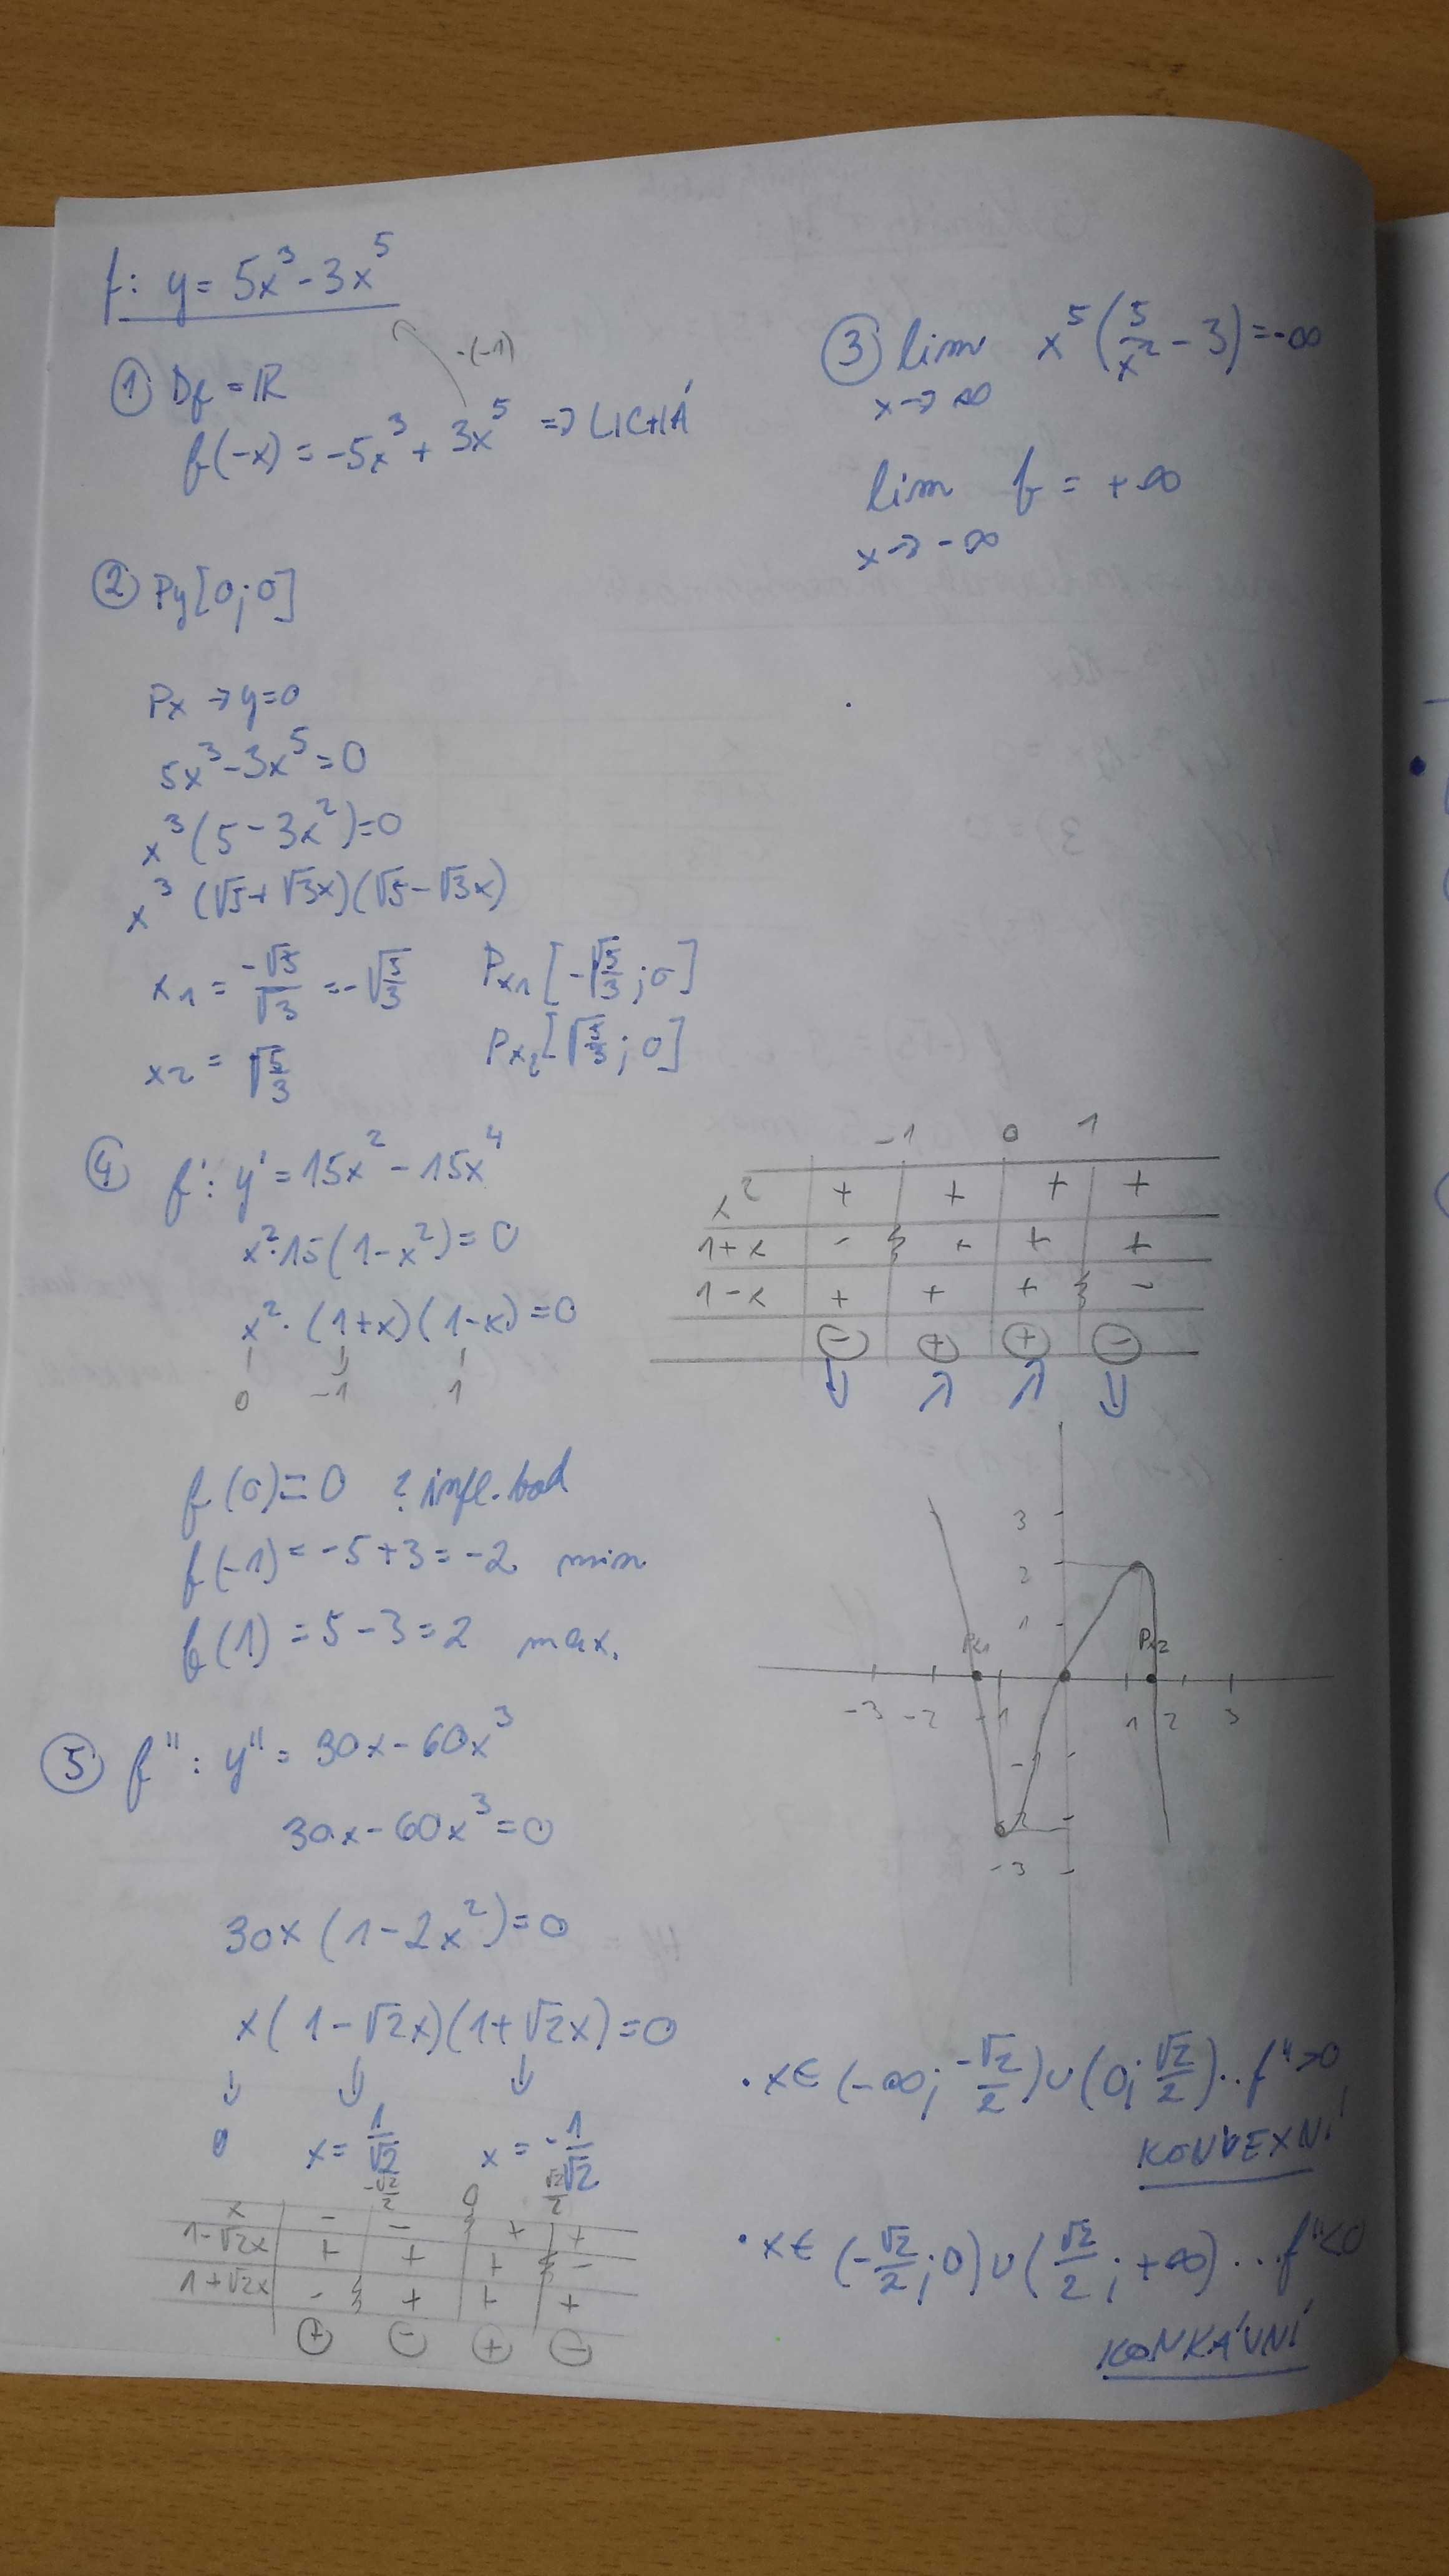 f: y = 5x³ - 3x⁵
·(-1)
① Df = ℝ
f(-x) = -5x³ + 3x⁵ => LICHÁ
② Py[0;0]
Px → y=0
5x³ - 3x⁵ = 0
x³(5 - 3x²) = 0
x³ (√5 + √3x)(√5 - √3x)
x1 = -√5/√3 = -√5/3 Px1 [-√5/3 ; 0]
x2 = √5/3 Px2[√5/3 ; 0]
③ lim x→∞ x⁵(5/x² - 3) = -∞
lim x→-∞ f = +∞
④ f': y' = 15x² - 15x⁴
x²·15(1-x²) = 0
x²·(1+x)(1-x) = 0
0 -1 1
-1 0 1
x² + + + +
1+x - + + +
1-x + + + -
- + + -
↘ ↗ ↗ ↘
f(0) = 0 ? infl. bod
f(-1) = -5+3 = -2 min
f(1) = 5-3 = 2 max.
3
2
1
Px1 Px2
-3 -2 -1 1 2 3
-1
-2
-3
⑤ f'': y'' = 30x - 60x³
30x - 60x³ = 0
30x (1 - 2x²) = 0
x(1 - √2x)(1 + √2x) = 0
0 x = 1/√2 x = -1/√2
-√2/2 0 √2/2
x - - + +
1-√2x + + + -
1+√2x - + + +
+ - + -
• x∈(-∞; -√2/2)∪(0; √2/2)..f''>0
KONVEXNÍ
• x∈(-√2/2; 0)∪(√2/2; +∞)...f''<0
KONKÁVNÍ